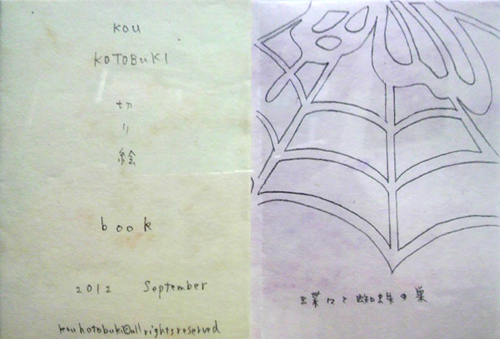 KOU
KOTOBUKI
切り絵
book
2012 September
kou kotobuki©all rights reserved
蝶々と蜘蛛の巣